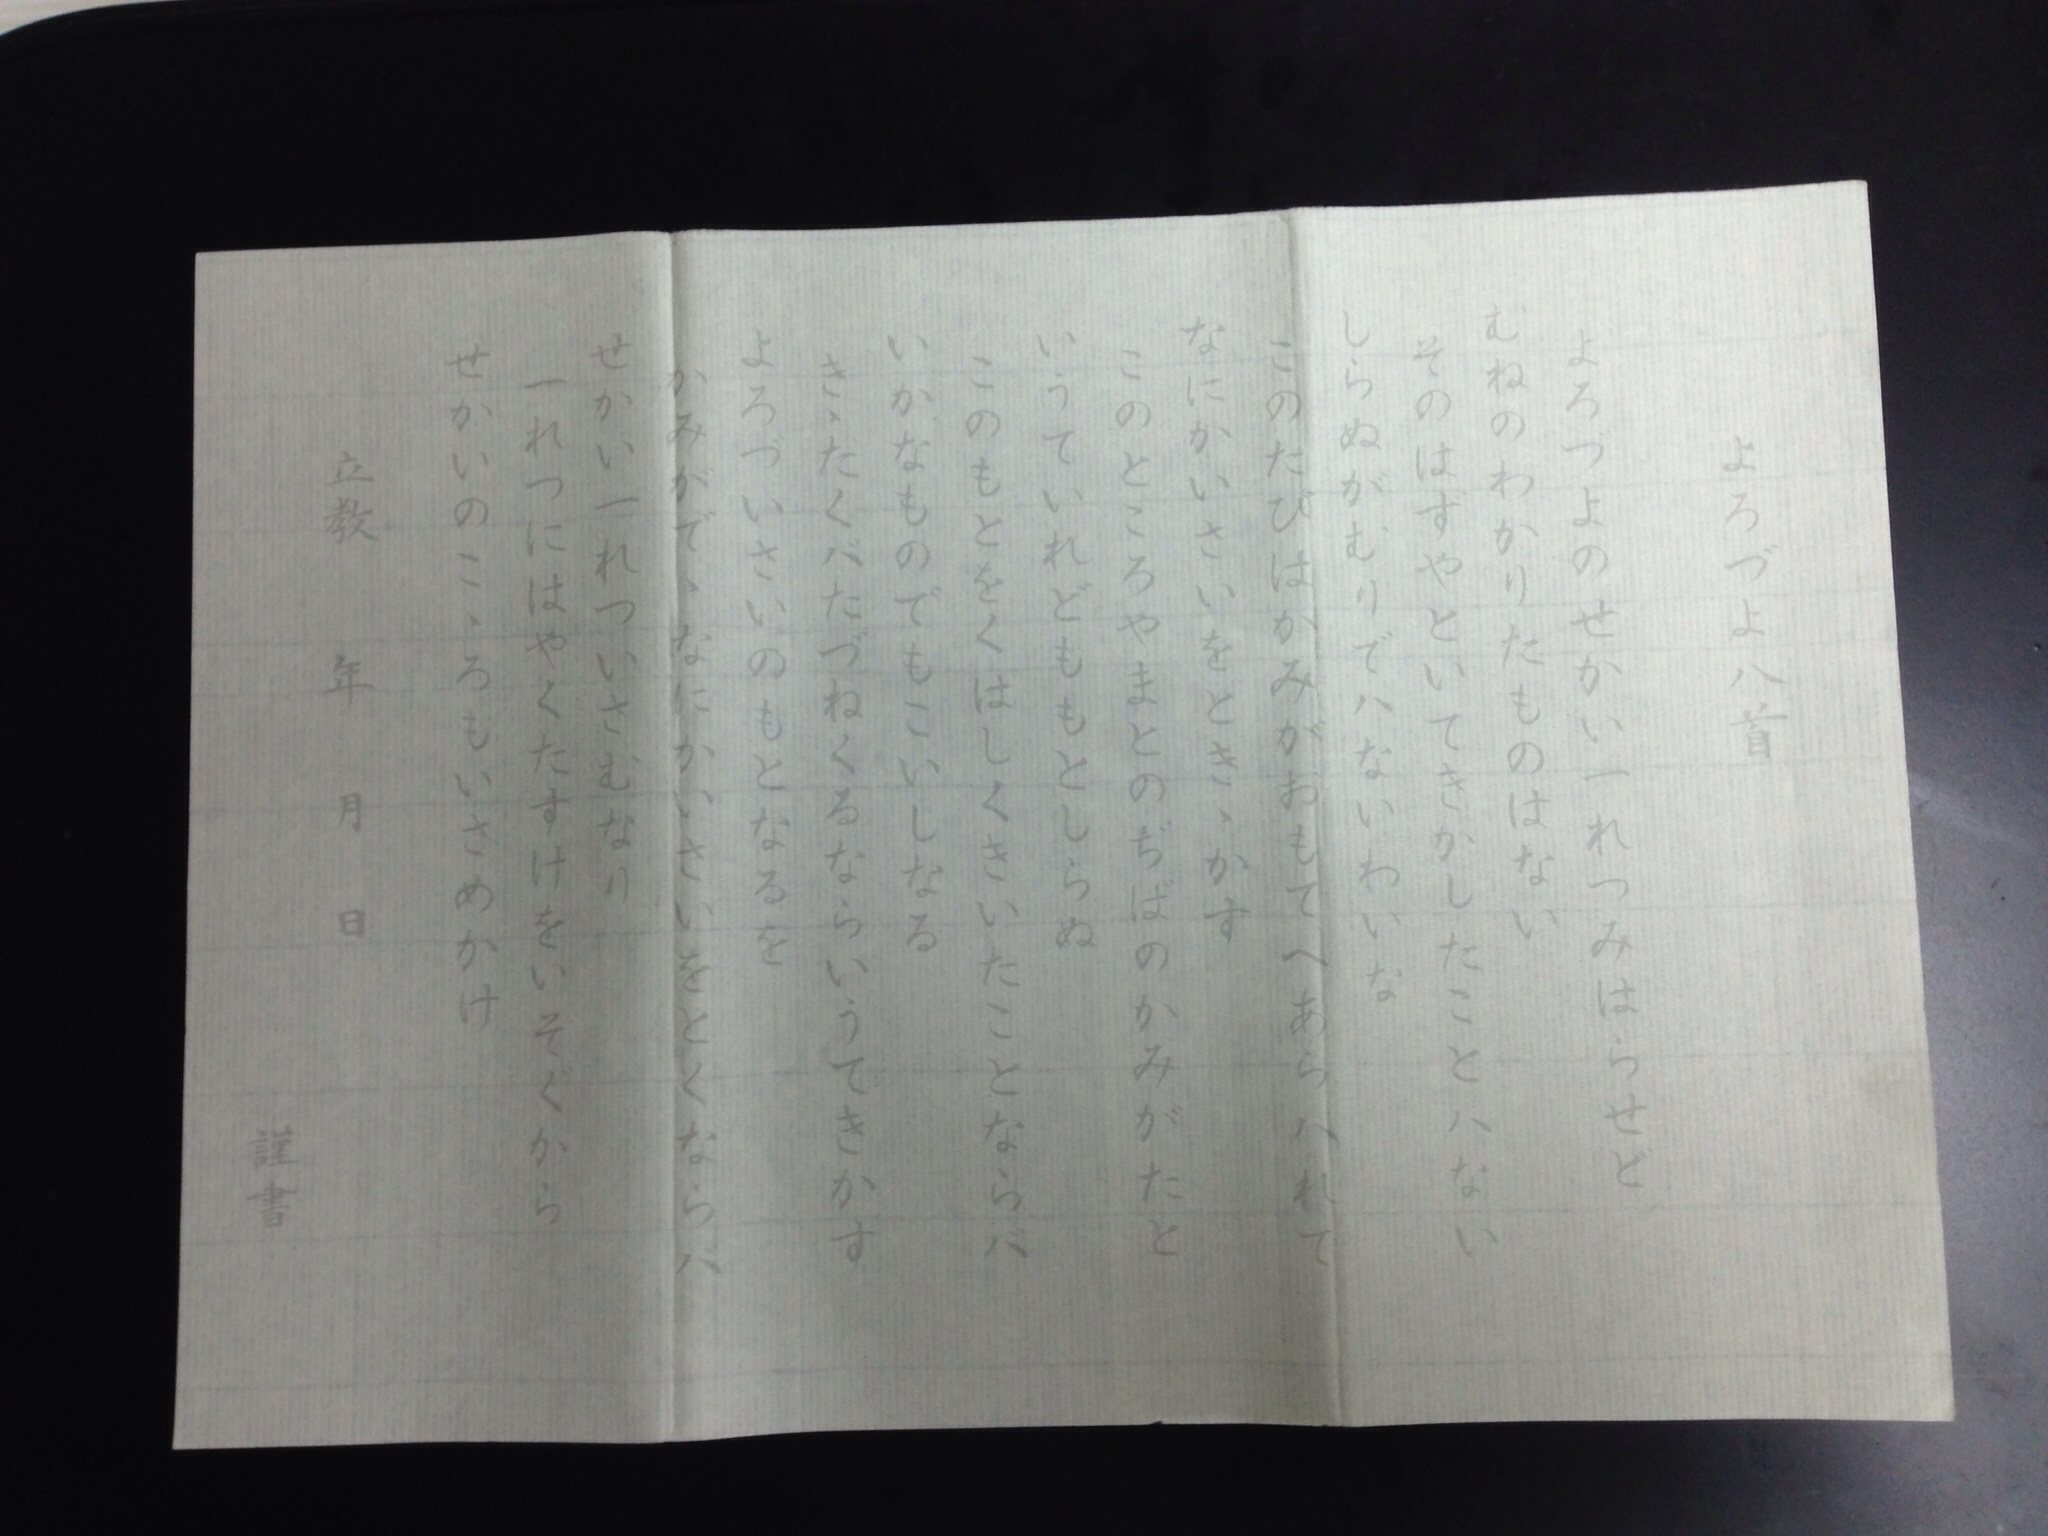 よろづよ八首
よろづよのせかい一れつみはらせど
むねのわかりたものはない
そのはずやといてきかしたことハない
しらぬがむりでハないわいな
このたびはかみがおもてへあらハれて
なにかいさいをときゝかす
このところやまとのぢばのかみがたと
いうていれどももとしらぬ
このもとをくはしくきいたことならバ
いかなものでもこいしなる
きゝたくバたづねくるならいうてきかす
よろづいさいのもとなるを
かみがでゝなにかいさいをとくならバ
せかい一れついさむなり
一れつにはやくたすけをいそぐから
せかいのこゝろもいさめかけ
立教　年　月　日
謹書